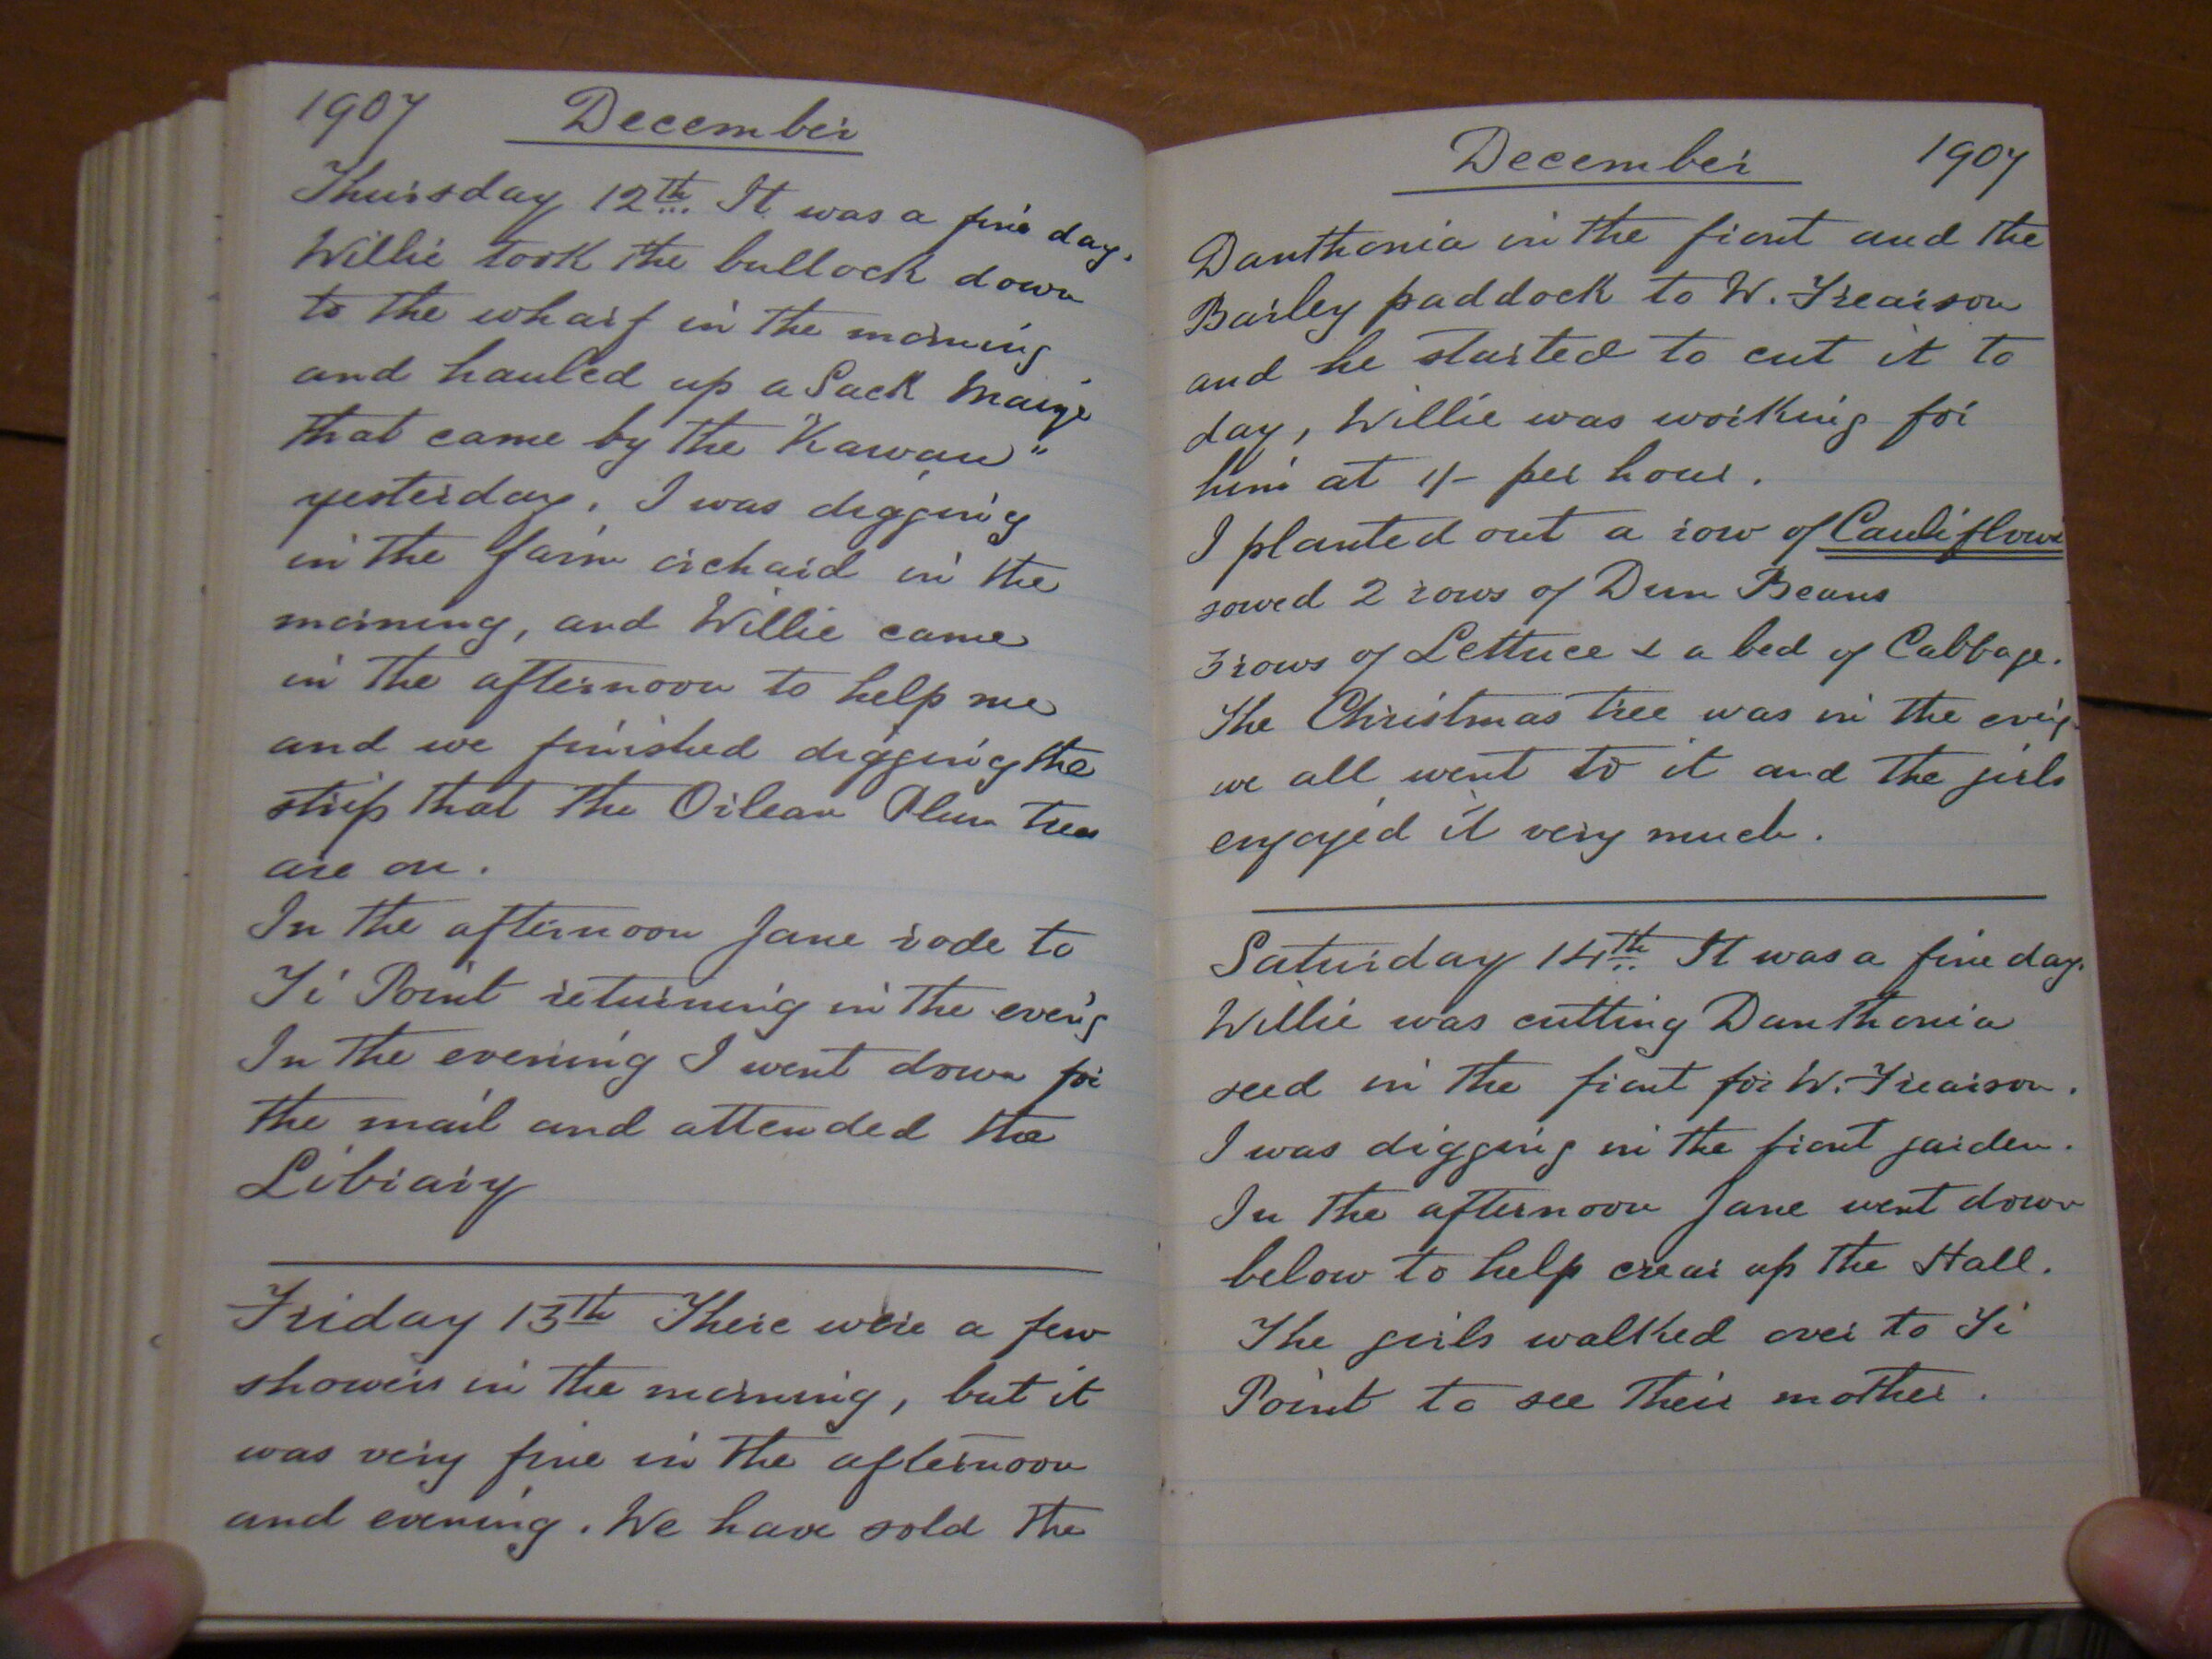 1907 December
Thursday 12th It was a fine day.
Willie took the bullock down
to the wharf in the morning
and hauled up a Sack Maize
that came by the "Kawau"
yesterday. I was digging
in the farm orchard in the
morning, and Willie came
in the afternoon to help me
and we finished digging the
strip that the Orlean Plum trees
are on.
In the afternoon Jane rode to
Ti Point returning in the eveng
In the evening I went down for
the mail and attended the
Library
Friday 13th There were a few
showers in the morning, but it
was very fine in the afternoon
and evening. We have sold the
December 1907
Danthonia in the front and the
Barley paddock to W. Frearson
and he started to cut it to
day, Willie was working for
him at 1/- per hour.
I planted out a row of Cauliflowr
sowed 2 rows of Dun Beans
3 rows of Lettuce & a bed of Cabbage.
The Christmas tree was in the eveg
we all went to it and the girls
enjoyed it very much.
Saturday 14th It was a fine day.
Willie was cutting Danthonia
seed in the front for W. Frearson.
I was digging in the front garden.
In the afternoon Jane went down
below to help crear up the Hall.
The girls walked over to Ti
Point to see their mother.